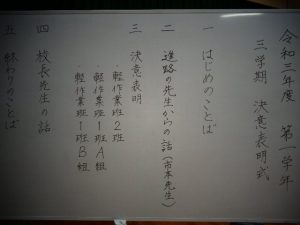 令和三年度　第一学年
三学期　決意表明式
一　はじめのことば
二　進路の先生からの話(市本先生)
三　決意表明
・軽作業班2班
・軽作業班1班A組
・軽作業班1班B組
四　校長先生の話
五　終わりのことば